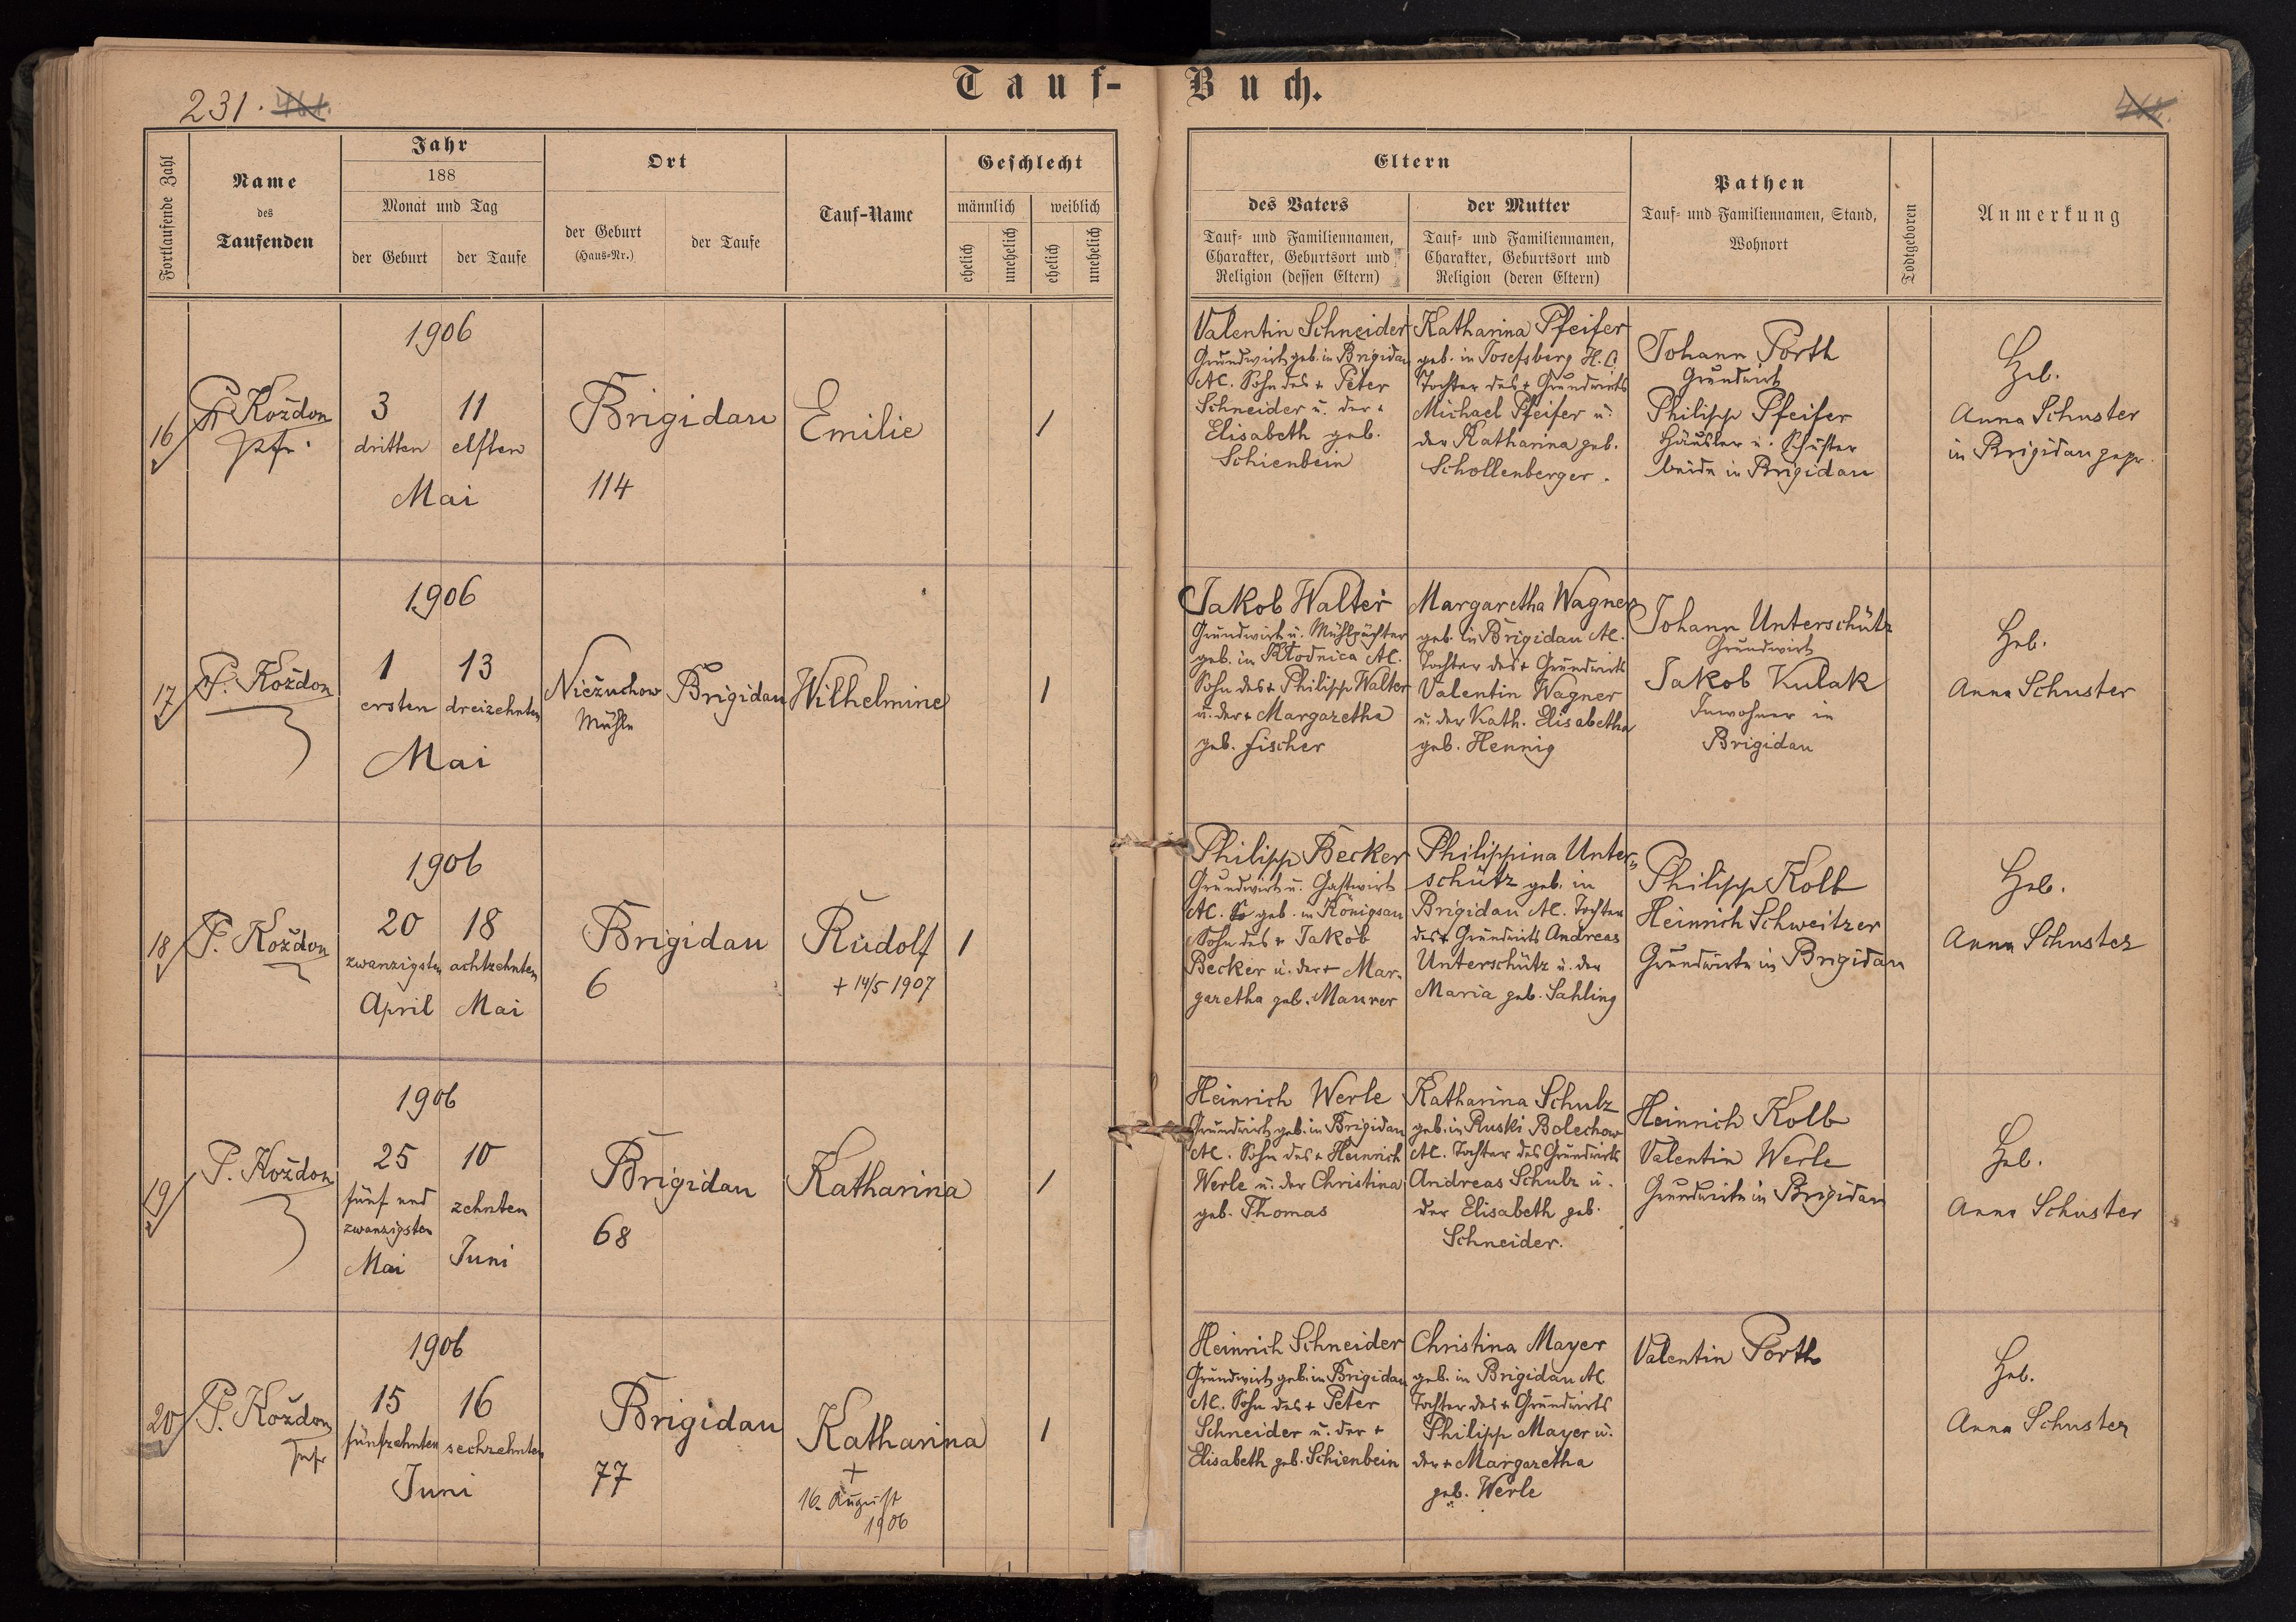 Tauf-Buch.
231. 461.
462.
Fortlaufende Zahl
Name
des
Taufenden
Jahr
188
Monat und Tag
der Geburt
der Taufe
Ort
der Geburt
(Haus-Nr.)
der Taufe
Tauf-Name
Geschlecht
männlich
weiblich
ehelich
unehelich
ehelich
unehelich
Eltern
des Vaters
Tauf- und Familiennamen,
Charakter, Geburtsort und
Religion (dessen Eltern)
der Mutter
Tauf- und Familiennamen,
Charakter, Geburtsort und
Religion (deren Eltern)
Pathen
Tauf- und Familiennamen, Stand,
Wohnort
Todtgeboren
Anmerkung
16
Kożdon
Pfr.
1906
3
dritten
11
elften
Mai
Brigidau
114
Emilie
1
Valentin Schneider
Grundwirt geb. in Brigidau
AC. Sohn des + Peter
Schneider u. der +
Elisabeth geb.
Schienbein
Katharina Pfeifer
geb. in Josefsberg H.C.
Tochter des + Grundwirts
Michael Pfeifer u.
der Katharina geb.
Schollenberger.
Johann Porth
Grundwirt
Philipp Pfeifer
Häusler u. Schuster
beide in Brigidau
Heb.
Anna Schuster
in Brigidau gepr.
17
P. Kożdon
1906
1
ersten
13
dreizehnten
Mai
Nieżuchow
Mühle
Brigidau
Wilhelmine
1
Jakob Walter
Grundwirt u. Mühlpächter
geb. in Kłodnica AC.
Sohn des + Philipp Walter
u. der + Margaretha
geb. Fischer
Margaretha Wagner
geb. in Brigidau AC.
Tochter des + Grundwirts
Valentin Wagner
u. der Kath. Elisabetha
geb. Hennig
Johann Unterschütz
Grundwirt
Jakob Kulak
Inwohner in
Brigidau
Heb.
Anna Schuster
18
P. Kożdon
1906
20
zwanzigsten
April
18
achtzehnten
Mai
Brigidau
6
Rudolf
+ 14/5 1907
1
Philipp Becker
Grundwirt u. Gastwirt
AC. So geb. in Königsau
Sohn des + Jakob
Becker u. der + Mar-
garetha geb. Maurer
Philippina Unter-
schütz geb. in
Brigidau AC. Tochter
des + Grundwirts Andreas
Unterschütz u. der
Maria geb. Sahling
Philipp Kolb
Heinrich Schweitzer
Grundwirte in Brigidau
Heb.
Anna Schuster
19
P. Kożdon
1906
25
fünf und
zwanzigsten
Mai
10
zehnten
Juni
Brigidau
68
Katharina
1
Heinrich Werle
Grundwirt geb. in Brigidau
AC. Sohn des + Heinrich
Werle u. der Christina
geb. Thomas
Katharina Schulz
geb. in Ruski Bolechow
AC. Tochter des Grundwirts
Andreas Schulz u.
der Elisabeth geb.
Schneider.
Heinrich Kolb
Valentin Werle
Grundwirte in Brigidau
Heb.
Anna Schuster
20
P. Kożdon
Pfr
1906
15
fünfzehnten
16
sechzehnten
Juni
Brigidau
77
Katharina
+
16. August
1906
1
Heinrich Schneider
Grundwirt geb. in Brigidau
AC. Sohn des + Peter
Schneider u. der +
Elisabeth geb. Schienbein
Christina Mayer
geb. in Brigidau AC
Tochter des + Grundwirts
Philipp Mayer u.
der + Margaretha
geb. Werle
Valentin Porth
Heb.
Anna Schuster